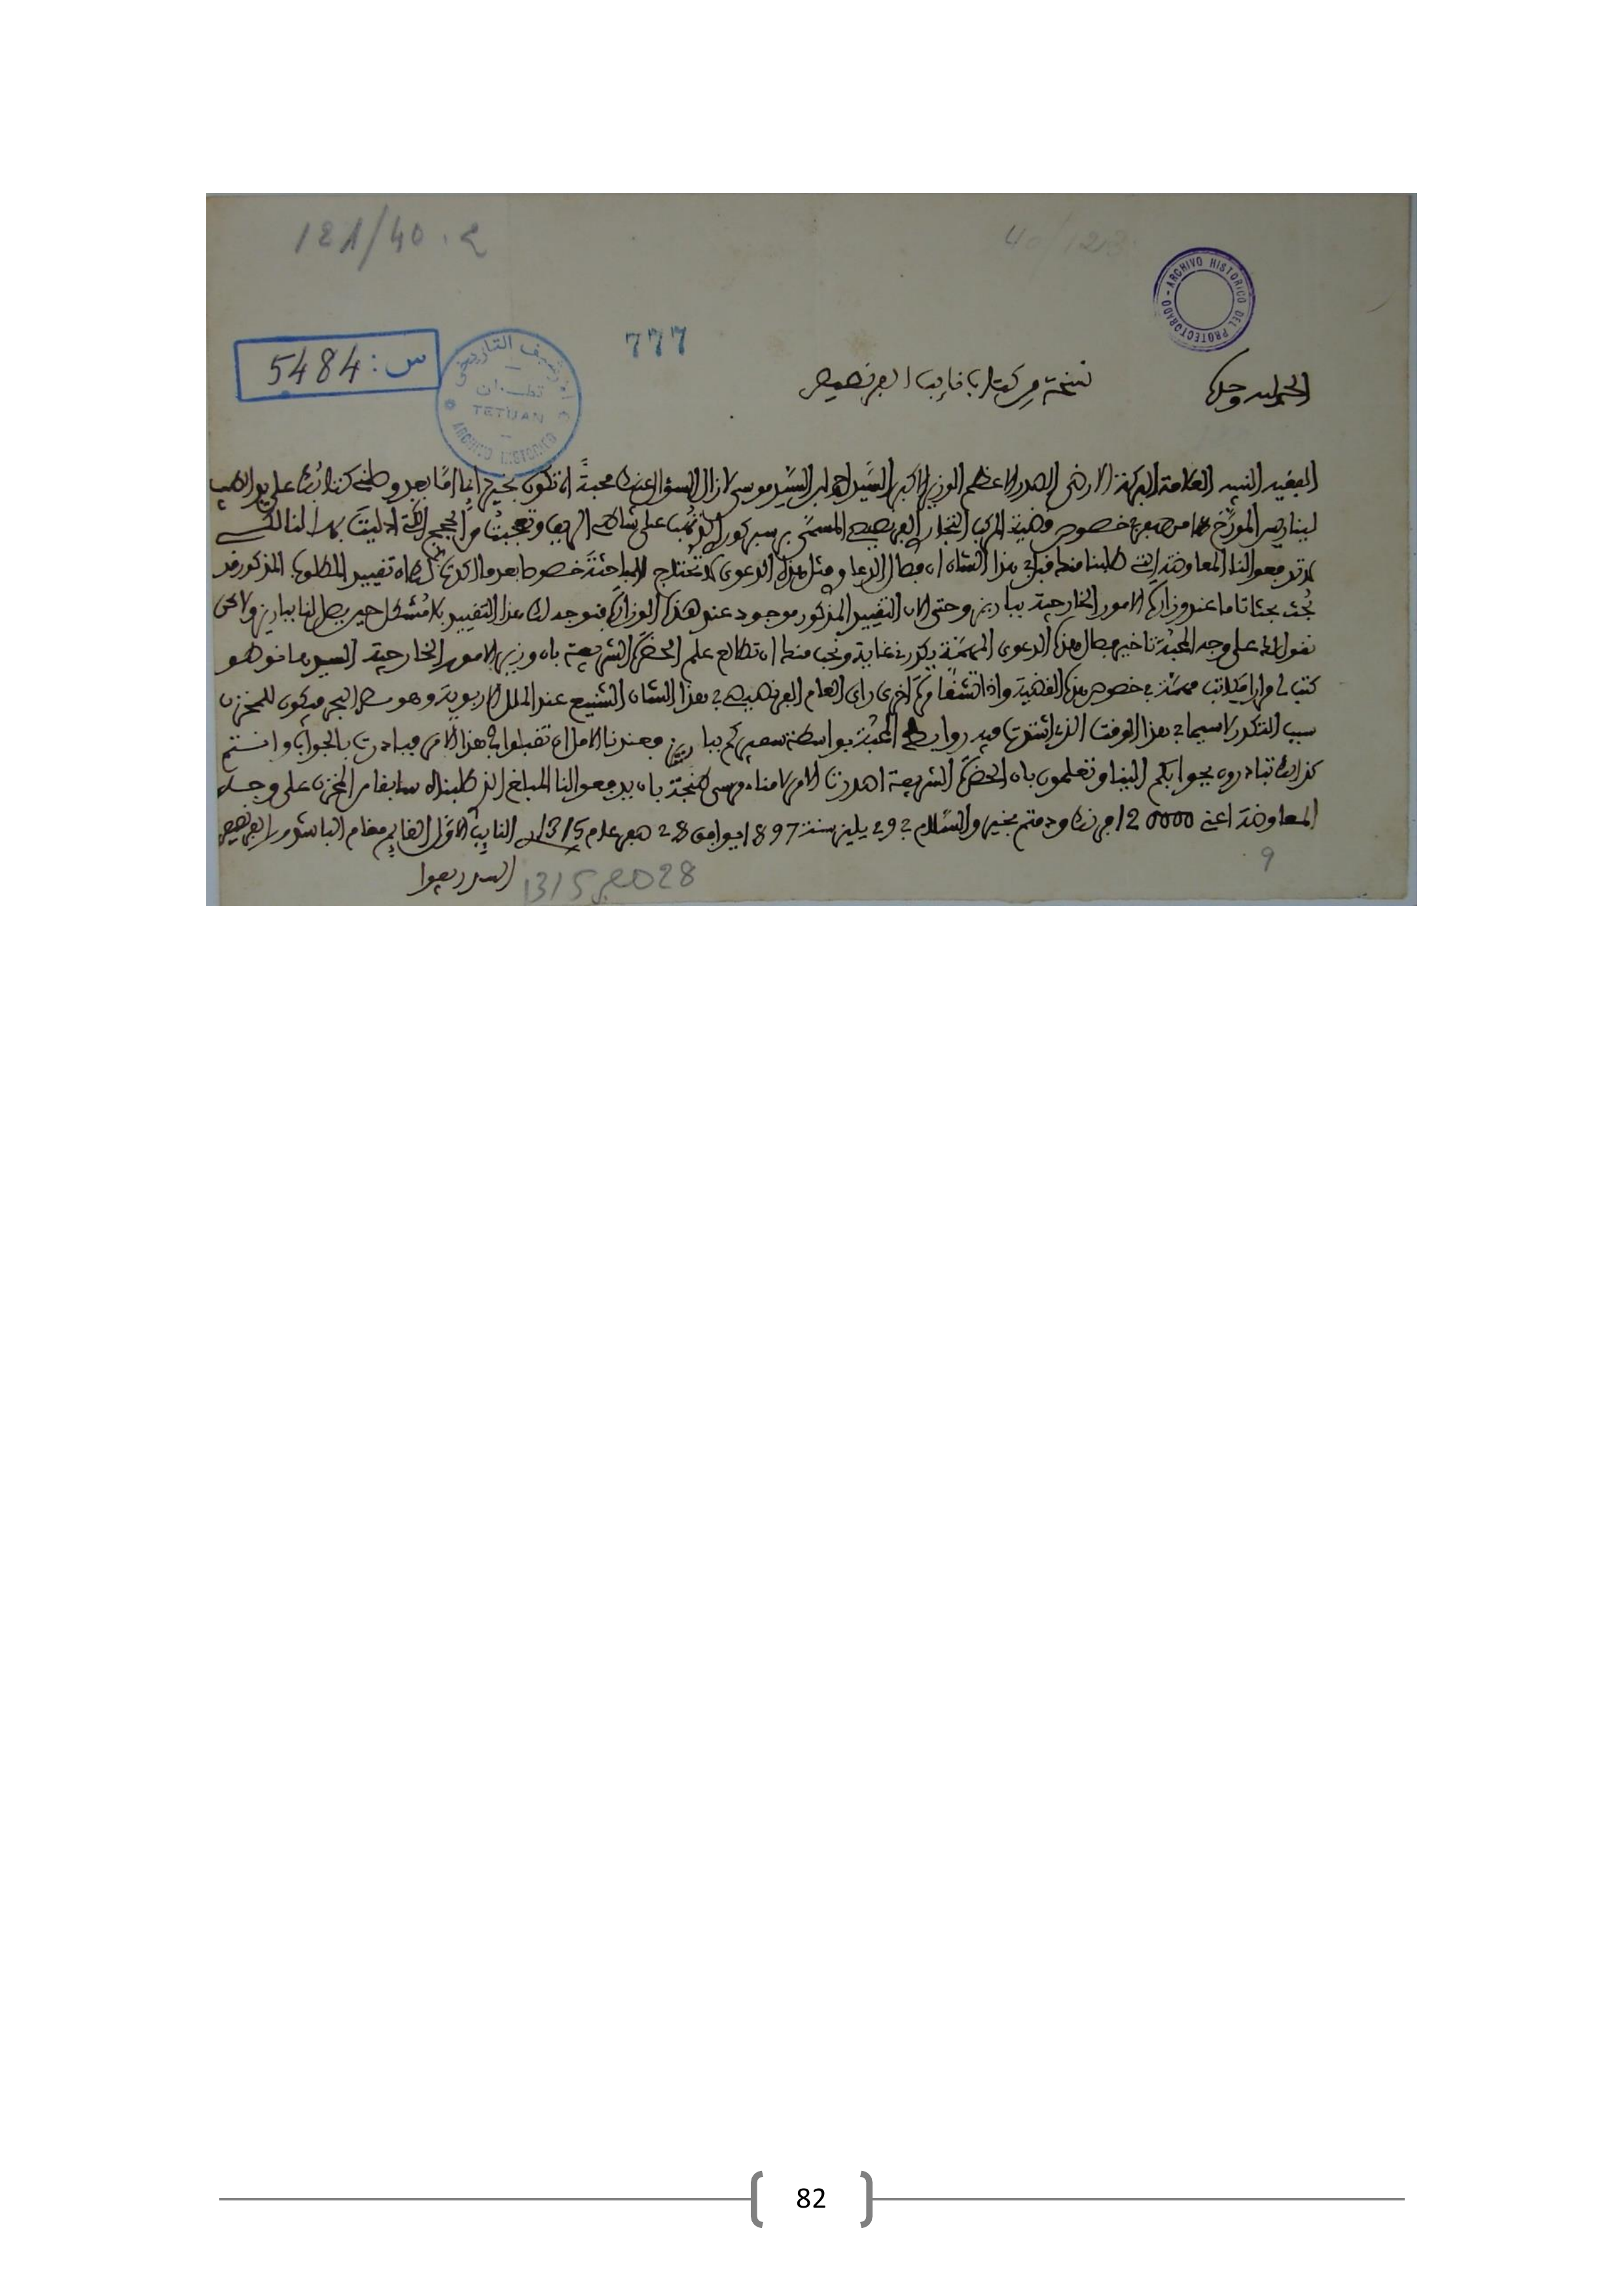 121/40.2
40/123
ARCHIVO HISTORICO DEL PROTECTORADO
777
س: 5484
الأرشيف التاريخي
تطوان
TETUAN
ARCHIVO HISTORICO
الحمد لله وحده
نسخة من كتاب نايب الفرنصيص
الفقيه النبيه العلامة البركة الارضى الصدر الاعظم الوزير الاكبر السيد احمد بن السيد موسى لا زال السؤال عنك محبة ان تكون بخير اما بعد وصلني كتابك على يد الطيب
لينا المورخ من صفر في خصوص قضية المركب التجار الفرنصيصي المسمى على شاطئ الريف وتعجبت من الحجج التي
لم تدفعوا لنا المعاوضة التي طلبنا منك قبل في هذا الشان ان فصال الدعاو مثل هذه الدعوى لا تحتاج للمباحثة خصوصا بعد ما ان تقييد المطلوب المذكور قد
بحث بحثا تاما عند وزارة الامور الخارجية بباريز وحتى الان التقييد المذكور موجود عند هذه الوزارة فنوجه لك هذا التقييد بلا مشكل حين يصل لنا بباريز ولاكن
نقول لك على وجه المحبة تاخير فصال هذه الدعوى المهمة يكدرني غاية ونحب منك ان تطالع علم الحضرة الشريفة بان وزير الامور الخارجية السيد هانوطو
كتب لي مرارا مكاتب مهمة في خصوص هذه القضية واذا مرة اخرى راى العام الفرنصيصي في هذا الشان الشنيع عند الملل الاربوية وهو البحر فيكون للمخزن
سبب التكدر لاسيما في هذا الوقت الذي فيه روابط المحبة بواسطة سفيركم بباريز وعندنا الامل ان تقبلوا في هذا الامر بالجواب وانتم
كذالك تبادرون بجوابكم الينا وتعلمون بان الحضرة الشريفة اصدرت الامر لامناء مرسى طنجة بان يدفعوا لنا المبلغ الذي طلبناه سابقا من المخزن على وجه
المعاوضة اعني 120000 فرنك ودمتم بخير والسلام في 29 يليز سنة 1897 موافق 28 صفر عام 1315 النايب الاول القايم مقام الباشدور الفرنصيص
السيد
28 صفر 1315
9
82